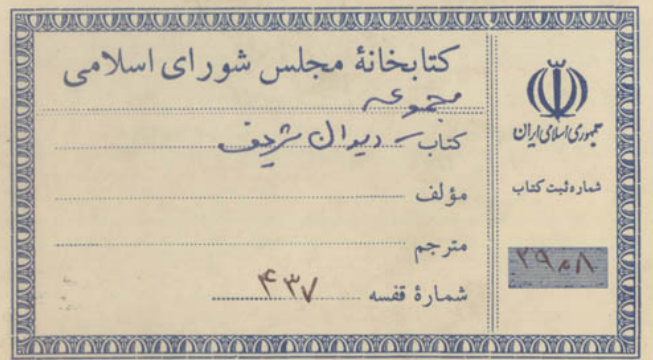 کتابخانهٔ مجلس شورای اسلامی
مجموعه
کتاب دیوان شریف
مؤلف
مترجم
شمارهٔ قفسه ۴۳۷
جمهوری اسلامی ایران
شماره ثبت کتاب